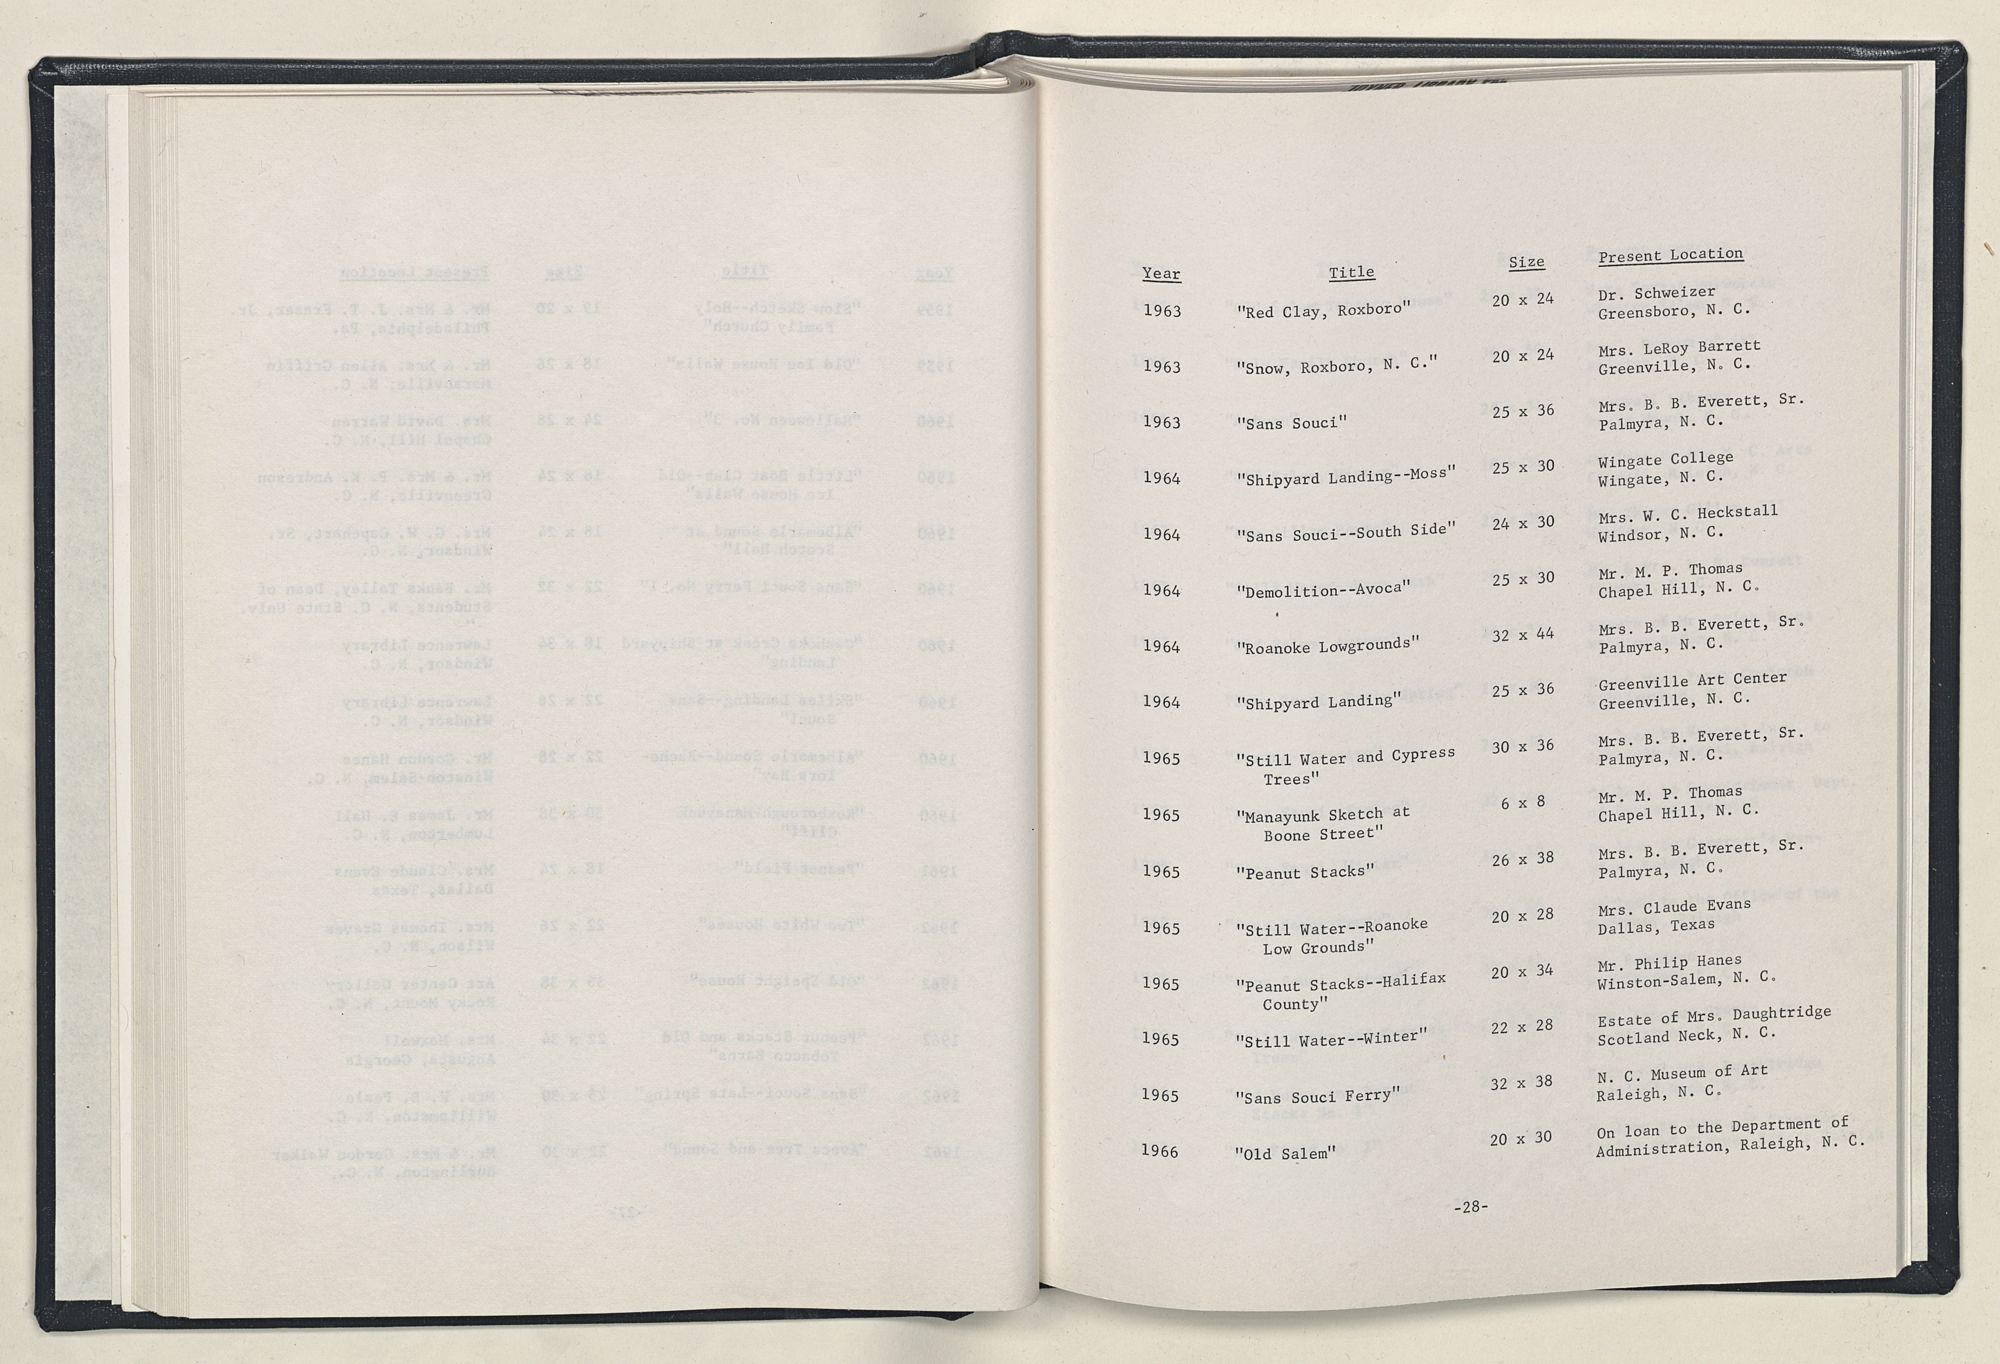 Year Title Size Present Location
1963 "Red Clay, Roxboro" 20 x 24 Dr. Schweizer
Greensboro, N. C.
1963 "Snow, Roxboro, N. C." 20 x 24 Mrs. LeRoy Barrett
Greenville, N. C.
1963 "Sans Souci" 25 x 36 Mrs. B. B. Everett, Sr.
Palmyra, N. C.
1964 "Shipyard Landing--Moss" 25 x 30 Wingate College
Wingate, N. C.
1964 "Sans Souci--South Side" 24 x 30 Mrs. W. C. Heckstall
Windsor, N. C.
1964 "Demolition--Avoca" 25 x 30 Mr. M. P. Thomas
Chapel Hill, N. C.
1964 "Roanoke Lowgrounds" 32 x 44 Mrs. B. B. Everett, Sr.
Palmyra, N. C.
1964 "Shipyard Landing" 25 x 36 Greenville Art Center
Greenville, N. C.
1965 "Still Water and Cypress 30 x 36 Mrs. B. B. Everett, Sr.
Trees" Palmyra, N. C.
1965 "Manayunk Sketch at 6 x 8 Mr. M. P. Thomas
Boone Street" Chapel Hill, N. C.
1965 "Peanut Stacks" 26 x 38 Mrs. B. B. Everett, Sr.
Palmyra, N. C.
1965 "Still Water--Roanoke 20 x 28 Mrs. Claude Evans
Low Grounds" Dallas, Texas
1965 "Peanut Stacks--Halifax 20 x 34 Mr. Philip Hanes
County" Winston-Salem, N. C.
1965 "Still Water--Winter" 22 x 28 Estate of Mrs. Daughtridge
Scotland Neck, N. C.
1965 "Sans Souci Ferry" 32 x 38 N. C. Museum of Art
Raleigh, N. C.
1966 "Old Salem" 20 x 30 On loan to the Department of
Administration, Raleigh, N. C.
-28-